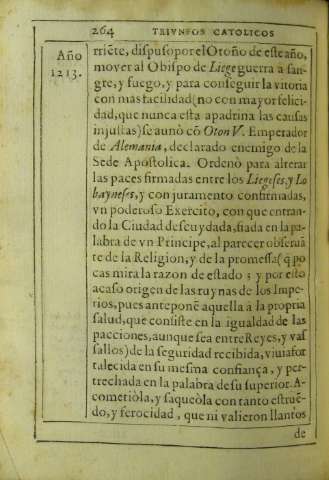 264 TRIVNFOS CATOLICOS
Año
1213.
rriẽte, dispuso por el Otoño de este año,
mover al Obispo de Liege guerra a san-
gre, y fuego, y para conseguir la vitoria
con mas facilidad (no con mayor felici-
dad, que nunca esta apadrina las causas
injustas) se aunò cõ Oton V. Emperador
de Alemania, declarado enemigo de la
Sede Apostolica. Ordenò para alterar
las paces firmadas entre los Liegeses, y Lo
bayneses, y con juramento confirmadas,
vn poderoso Exercito, con que entran-
do la Ciudad descuydada, fiada en la pa-
labra de vn Principe, al parecer observã
te de la Religion, y de la promessa (q̃ po
cas mira la razon de estado; y por esto
acaso origen de las ruynas de los Impe-
rios, pues anteponẽ aquella à la propria
salud, que consiste en la igualdad de las
pacciones, aunque sea entre Reyes, y vas
sallos) de la seguridad recibida, viuia for
talecida en su mesma confiança, y per-
trechada en la palabra de su superior. A-
cometiòla, y saqueòla con tanto estruẽ-
do, y ferocidad, que ni valieron llantos
de